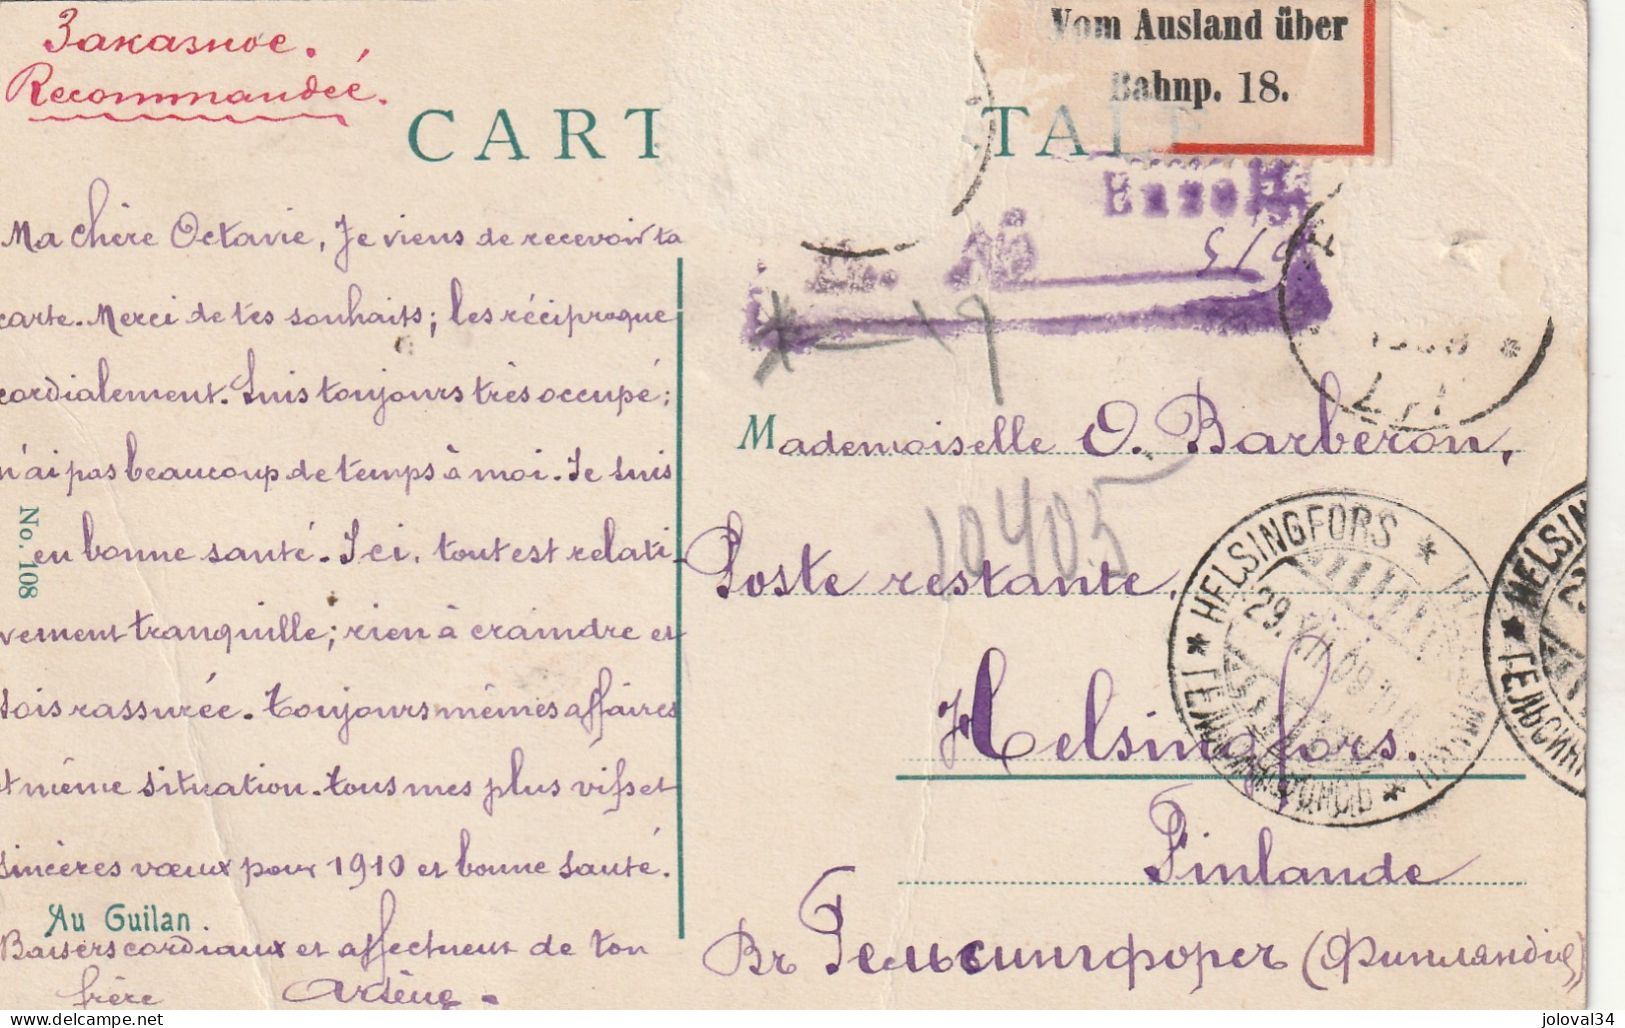 Заказное.
Recommandée.
CART TALE
Vom Ausland über
Bahnp. 18.
Enzeli
Ma chère Octavie, Je viens de recevoir ta
carte. Merci de tes souhaits; les réciproque
cordialement. Suis toujours très occupé;
n'ai pas beaucoup de temps à moi. Je suis
en bonne santé. Ici, tout est relati-
vement tranquille; rien à craindre et
sois rassurée. Toujours mêmes affaires
et même situation. tous mes plus vifs et
sincères vœux pour 1910 et bonne santé.
Au Guilan.
Baisers cordiaux et affectueux de ton
frère Ardène.
No. 108
Mademoiselle O. Barberon,
10405
Poste restante.
Helsingfors.
Finlande
Въ Гельсингфорсъ (Финляндiя)
HELSINGFORS
29.XII.09
ГЕЛЬСИНГФОРСЪ
HELSIN
ГЕЛЬСИН
delcampe.net
joloval34